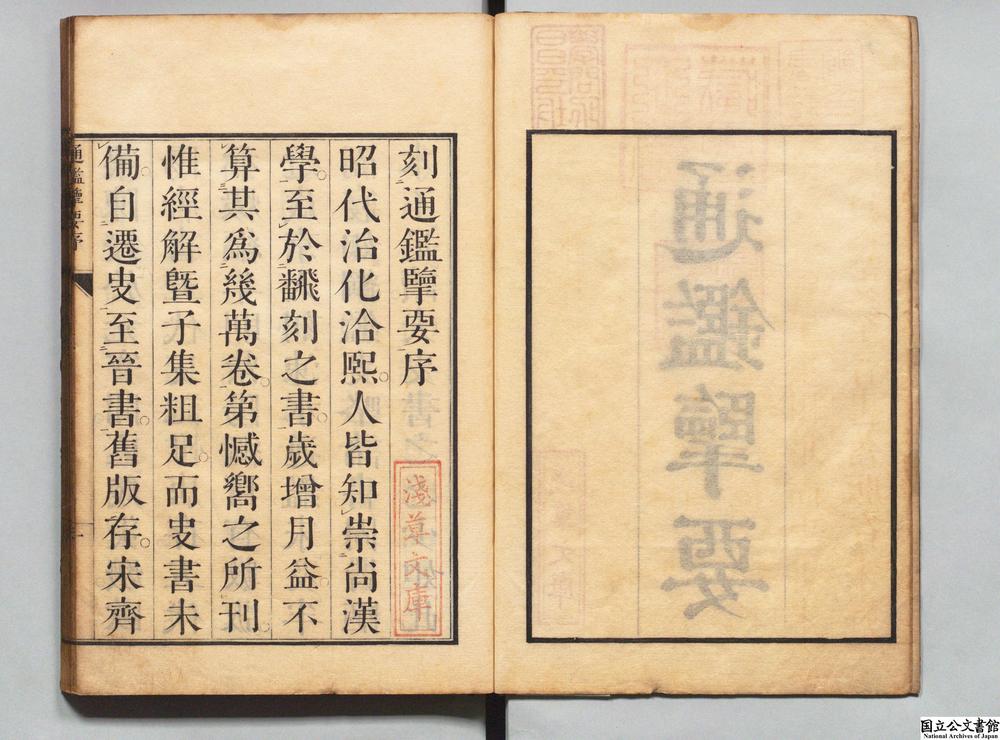 通鑑擥要
刻通鑑擥要序
昭代治化洽熈人皆知崇尚漢
學至於翻刻之書歲增月益不
算其爲幾萬卷第憾嚮之所刊
惟經解曁子集粗足而史書未
備自遷史至晉書舊版存宋齊
通鑑擥要序
淺草文庫
国立公文書館
National Archives of Japan